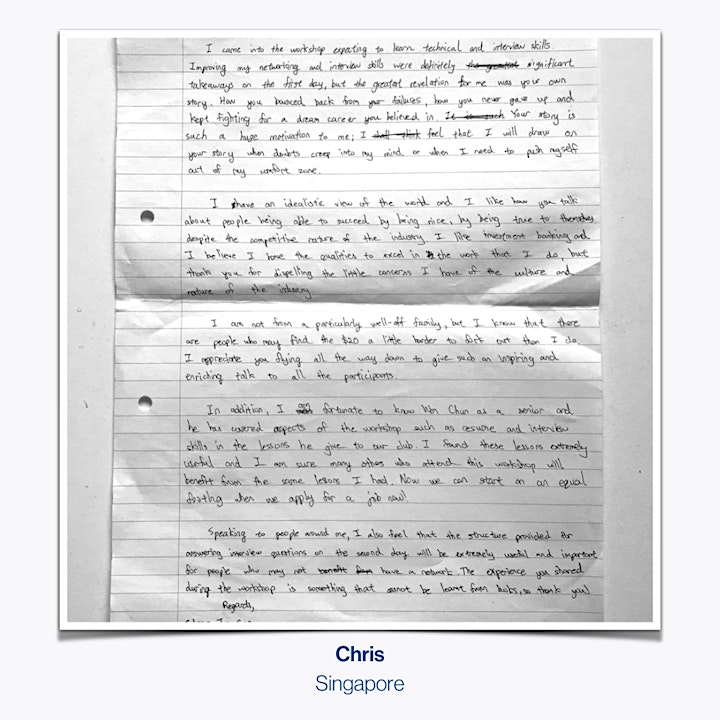 I came into the workshop expecting to learn technical and interview skills.
Improving my networking and interview skills were definitely the greatest significant
takeaways on the first day, but the greatest revelation for me was your own
story. How you bounced back from your failures, how you never gave up and
kept fighting for a dream career you believed in. It is such Your story is
such a huge motivation to me; I shall think feel that I will draw on
your story when doubts creep into my mind or when I need to push myself
out of my comfort zone.
I have an idealistic view of the world and I like how you talk
about people being able to succeed by being nice, by being true to themselves
despite the competitive nature of the industry. I like investment banking and
I believe I have the qualities to excel in the work that I do, but
thank you for dispelling the little concerns I have of the culture and
nature of the industry.
I am not from a particularly well-off family, but I know that there
are people who may find the $20 a little harder to fork out than I do.
I appreciate you flying all the way down to give such an inspiring and
enriching talk to all the participants.
In addition, I fortunate to know Wen Chun as a senior and
he has covered aspects of the workshop such as resume and interview
skills in the lessons he give to our club. I found these lessons extremely
useful and I am sure many others who attend this workshop will
benefit from the same lessons I had. Now we can start on an equal
footing when we apply for a job now!
Speaking to people around me, I also feel that the structure provided for
answering interview questions on the second day will be extremely useful and important
for people who may not benefit from have a network. The experience you shared
during the workshop is something that cannot be learnt from books, so thank you!
Regards,
Chris
Singapore